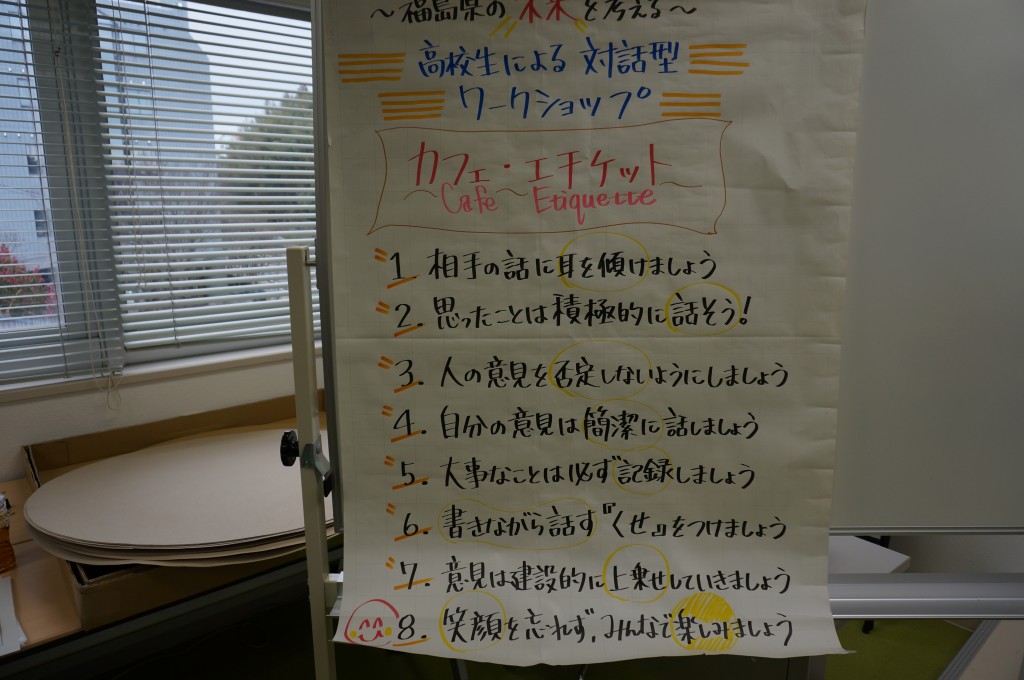 ～福島県の未来を考える～
高校生による 対話型
ワークショップ
カフェ・エチケット
～Cafe～Etiquette～
1. 相手の話に耳を傾けましょう
2. 思ったことは積極的に話そう!
3. 人の意見を否定しないようにしましょう
4. 自分の意見は簡潔に話しましょう
5. 大事なことは必ず記録しましょう
6. 書きながら話す『くせ』をつけましょう
7. 意見は建設的に上乗せしていきましょう
8. 笑顔を忘れず,みんなで楽しみましょう